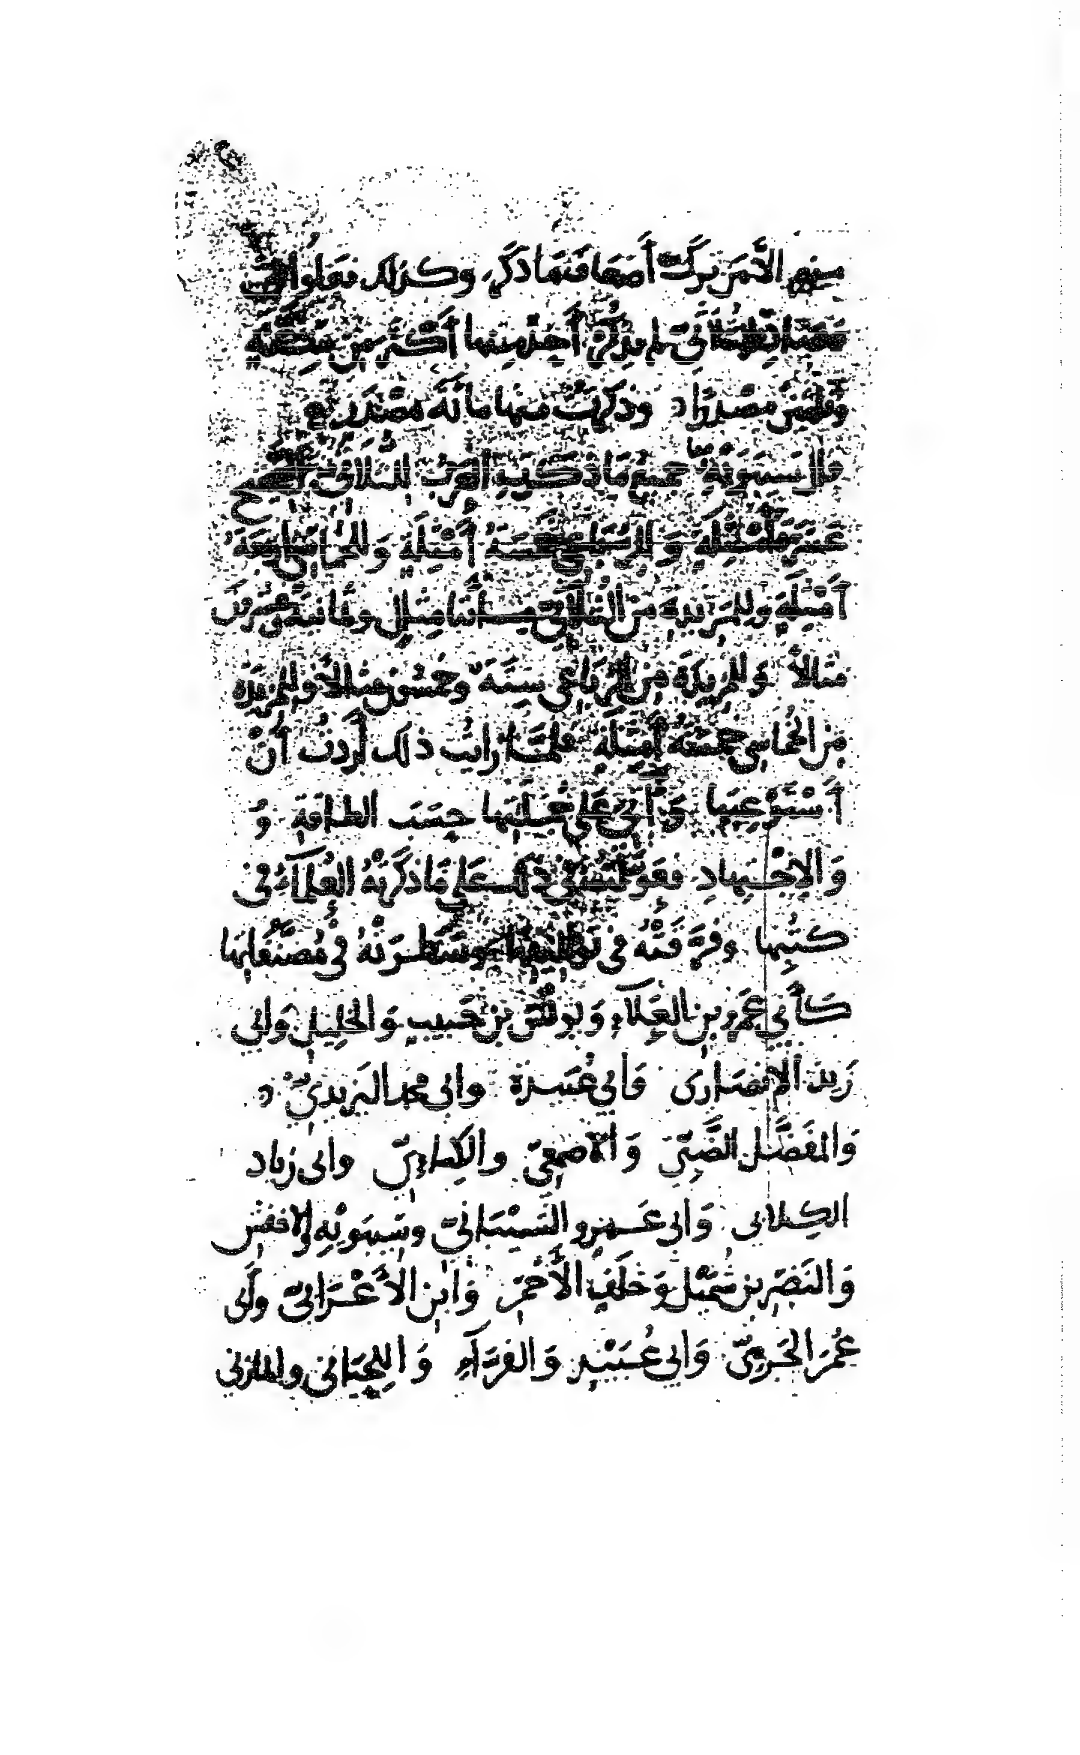 منهم الا من ترك أضعاف ما ذكر وكذلك فعلوا في
مصادر الثلاثي لم يذكر أحد منها أكثر من ستة
وثلثين مصدرا وذكرت منها مائة مصدر
قال سيبويه جميع ما ذكر
عشرة أمثلة وللرباعي خمسة أمثلة وللخماسي أربعة
أمثلة وللمزيدة من الثلاثي مثال وثمانية وعشرين
مثالا وللمزيدة من الرباعي ستة وخمسون مثالا وللمزيدة
من الخماسي خمسة أمثلة فلما رأيت ذلك أردت أن
أستوعبها وآتي على جملتها حسب الطاقة و
والاجتهاد فعولت في ذلك على ما ذكرته العلماء في
كتبها وفرقته في تواليفها وسطرته في مصنفاتها
كأبي عمرو بن العلاء ويونس بن حبيب والخليل وأبي
زيد الانصارى وأبي عبيدة وابى محمد اليزيدي
والمفضل الضبي والأصمعي والكسائي وابى زياد
الكلابى وأبى عمرو الشيباني وسيبويه والاخفش
والنضر بن شميل وخلف الأحمر وابن الأعرابي وأبى
عمر الجرمي وأبى عبيد والفراء واللحياني والمازنى